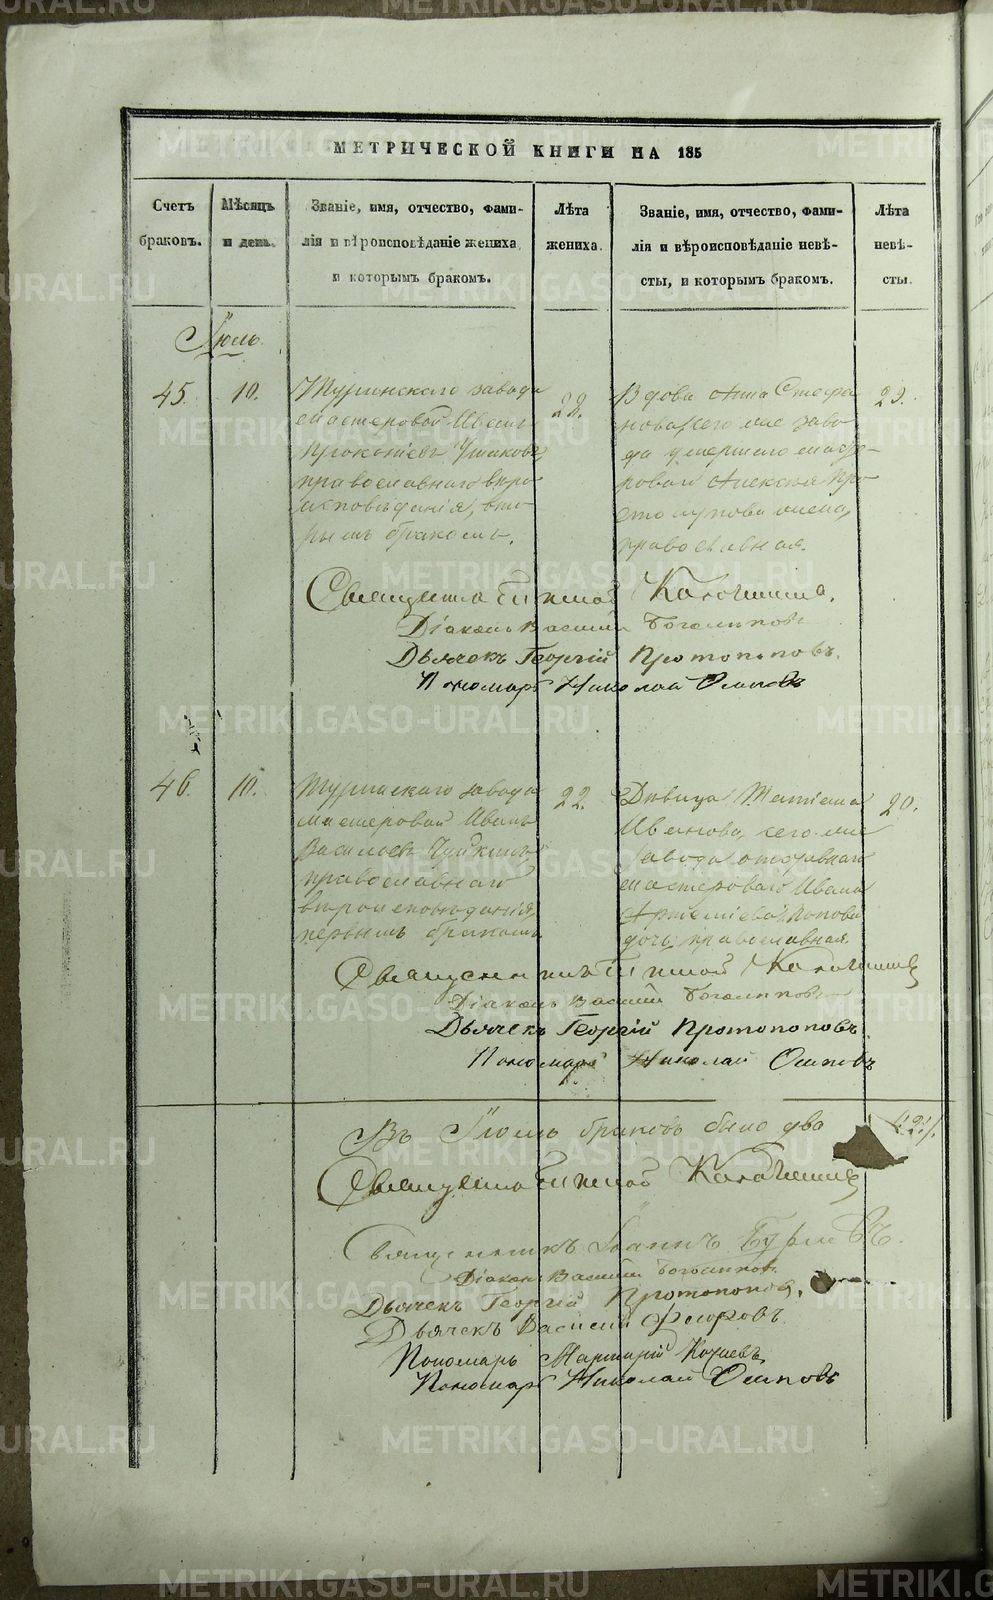 МЕТРИЧЕСКОЙ КНИГИ НА 185
Счетъ браковъ.
Мѣсяцъ и день.
Званіе, имя, отчество, фами-
лія и вѣроисповѣданіе жениха,
и которымъ бракомъ.
Лѣта жениха.
Званіе, имя, отчество, фами-
лія и вѣроисповѣданіе невѣ-
сты, и которымъ бракомъ.
Лѣта невѣ-
сты.
Іюль
45.
10.
Туринскаго завода
мастеровой Иванъ
Прокопіевъ Ушаковъ,
православнаго вѣро
исповѣданія, вто
рымъ бракомъ.
28.
Вдова Анна Стефа
нова, сего же заво
да умершаго масте-
роваго Алексея
жена,
православная.
29.
Священникъ Калачниковъ
Діаконъ Василій Боголюповъ
Дьячекъ Георгій Протопоповъ.
Пономарь Николай Осиповъ
46.
10.
Туринскаго завода
мастеровой Иванъ
Васильевъ Чуйкинъ
православнаго
вѣроисповѣданія,
первымъ бракомъ
22.
Дѣвица Татіана
Иванова, сего же
завода отставнаго
мастероваго Ивана
Артеміева Попова
дочь, православная.
20.
Священникъ
Діаконъ Василій
Дьячекъ Георгій Протопоповъ.
Пономарь Николай Осиповъ
Въ Іюль браковъ было два
Священникъ
Священникъ Іоаннъ
Діаконъ Василій
Дьячекъ Георгій Протопоповъ.
Дьячекъ Василій Флоровъ
Пономарь
Пономарь Николай Осиповъ
METRIKI.GASO-URAL.RU